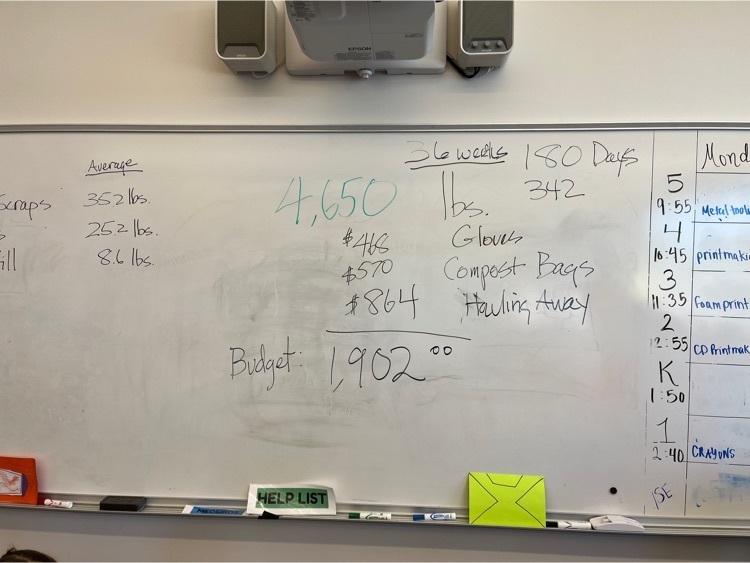 EPSON
36 weeks 180 Days
Average
4,650 lbs. 342
Scraps 35.2 lbs.
25.2 lbs.
8.6 lbs.
$468 Gloves
$570 Compost Bags
$864 Hauling Away
Budget: 1,902.00
Mond
5
9:55 Metal tooli
4
10:45 printmaki
3
11:35 foam print
2
12:55 CD Printmak
K
1:50
1
2:40 CRAYONS
ISE
HELP LIST